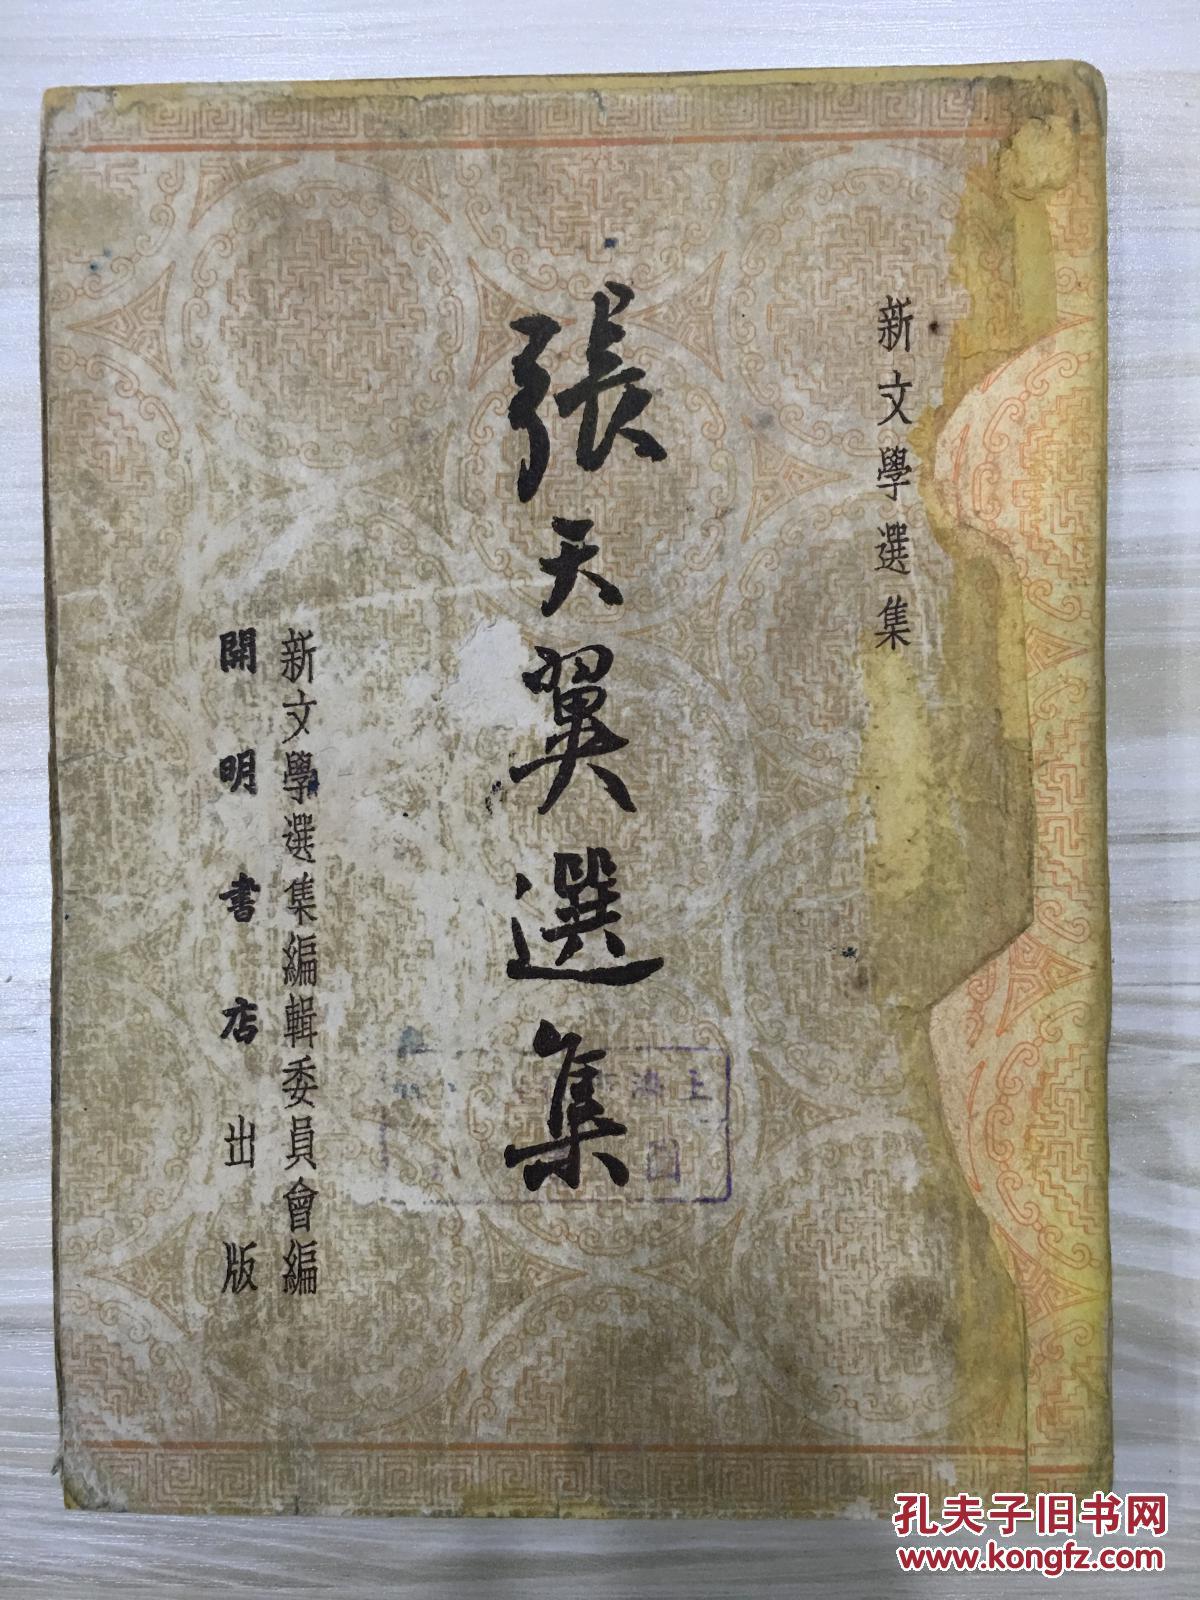 新文學選集
張天翼選集
新文學選集編輯委員會編
開明書店出版
上海
孔夫子旧书网
www.kongfz.com